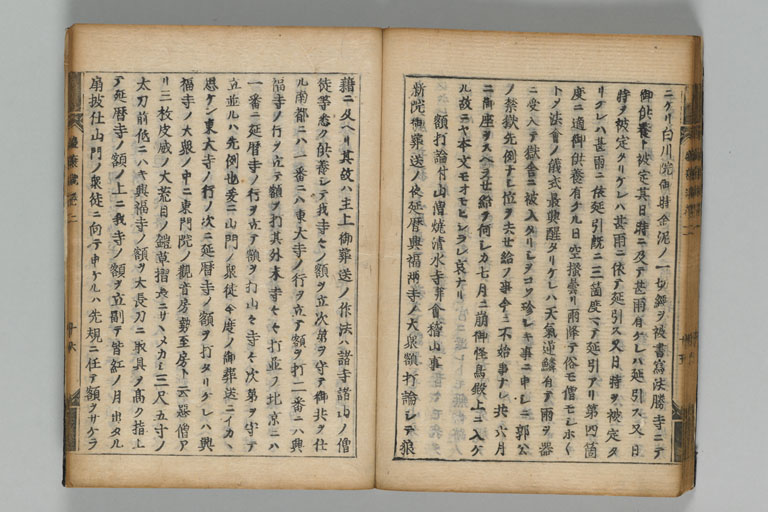 ニケリ白川院御時金泥ノ一切經ヲ被書寫法勝寺ニテ
御供養ト被定其日時ニ及テ甚雨有ケレハ延引ス又日
時ヲ被定タリケレハ甚雨ニ依テ延引ス又日時ヲ被定タ
リケレハ甚雨ニ依延引既ニ三箇度マテ延引アリ第四箇
度ニ適御供養有ケル日空掻曇リ雨降テ俗モ僧モシホ〱
トメ法會ノ儀式最興醒タリケレハ天氣逆鱗有テ雨ヲ器
ニ受入テ獄舎ニ被入タリシヲコソ珍シキ事ニ申シニ郭公
ノ禁獄先例ナシ位ヲ去セ給フ事今ニ不始事ナレ共六月
ニ御座ヲスヘラセ給ヲ何シカ七月ニ崩御怪鳥獄上ニ入ケ
ル故ニヤ本文モオモヒシラレ哀ナリ
額打論付山僧燒清水寺并會稽山事
新院御葬送ノ夜延暦興福兩寺ノ大衆額打論シテ狼
籍ニ及ヘリ其故ハ主上御葬送ノ作法ハ諸寺諸山ノ僧
徒等悉ク供養シテ我寺々ノ額ヲ立次第ヲ守テ御共ヲ仕
ル南都ニハ一番ニハ東大寺ノ行ヲ立テ額ヲ打二番ニハ興
福寺ノ行ヲ立テ額ヲ打其外末寺々々打並フ北京ニハ
一番ニ延暦寺ノ行ヲ立テ額ヲ打山々寺々次第ヲ守テ
立並ルハ先例也爰ニ山門ノ衆徒今度ノ御葬送ニイカヽ
思ケン東大寺ノ行ノ次ニ延暦寺ノ額ヲ打タリケレハ興
福寺ノ大衆ノ中ニ東門院ノ觀音房勢至房ト云惡僧ア
リ三枚皮威ノ大荒目ノ鎧草摺長ニサヽメカシ三尺五寸ノ
太刀前低ニハキ興福寺ノ額ヲ大長刀ニ取具ヲ高ク指上
テ延暦寺ノ額ノ上ニ我寺ノ額ヲ立副テ皆紅ノ月出タル
扇披仕山門ノ衆徒ニ向テ申ケルハ先規ニ任テ額ヲサケラ